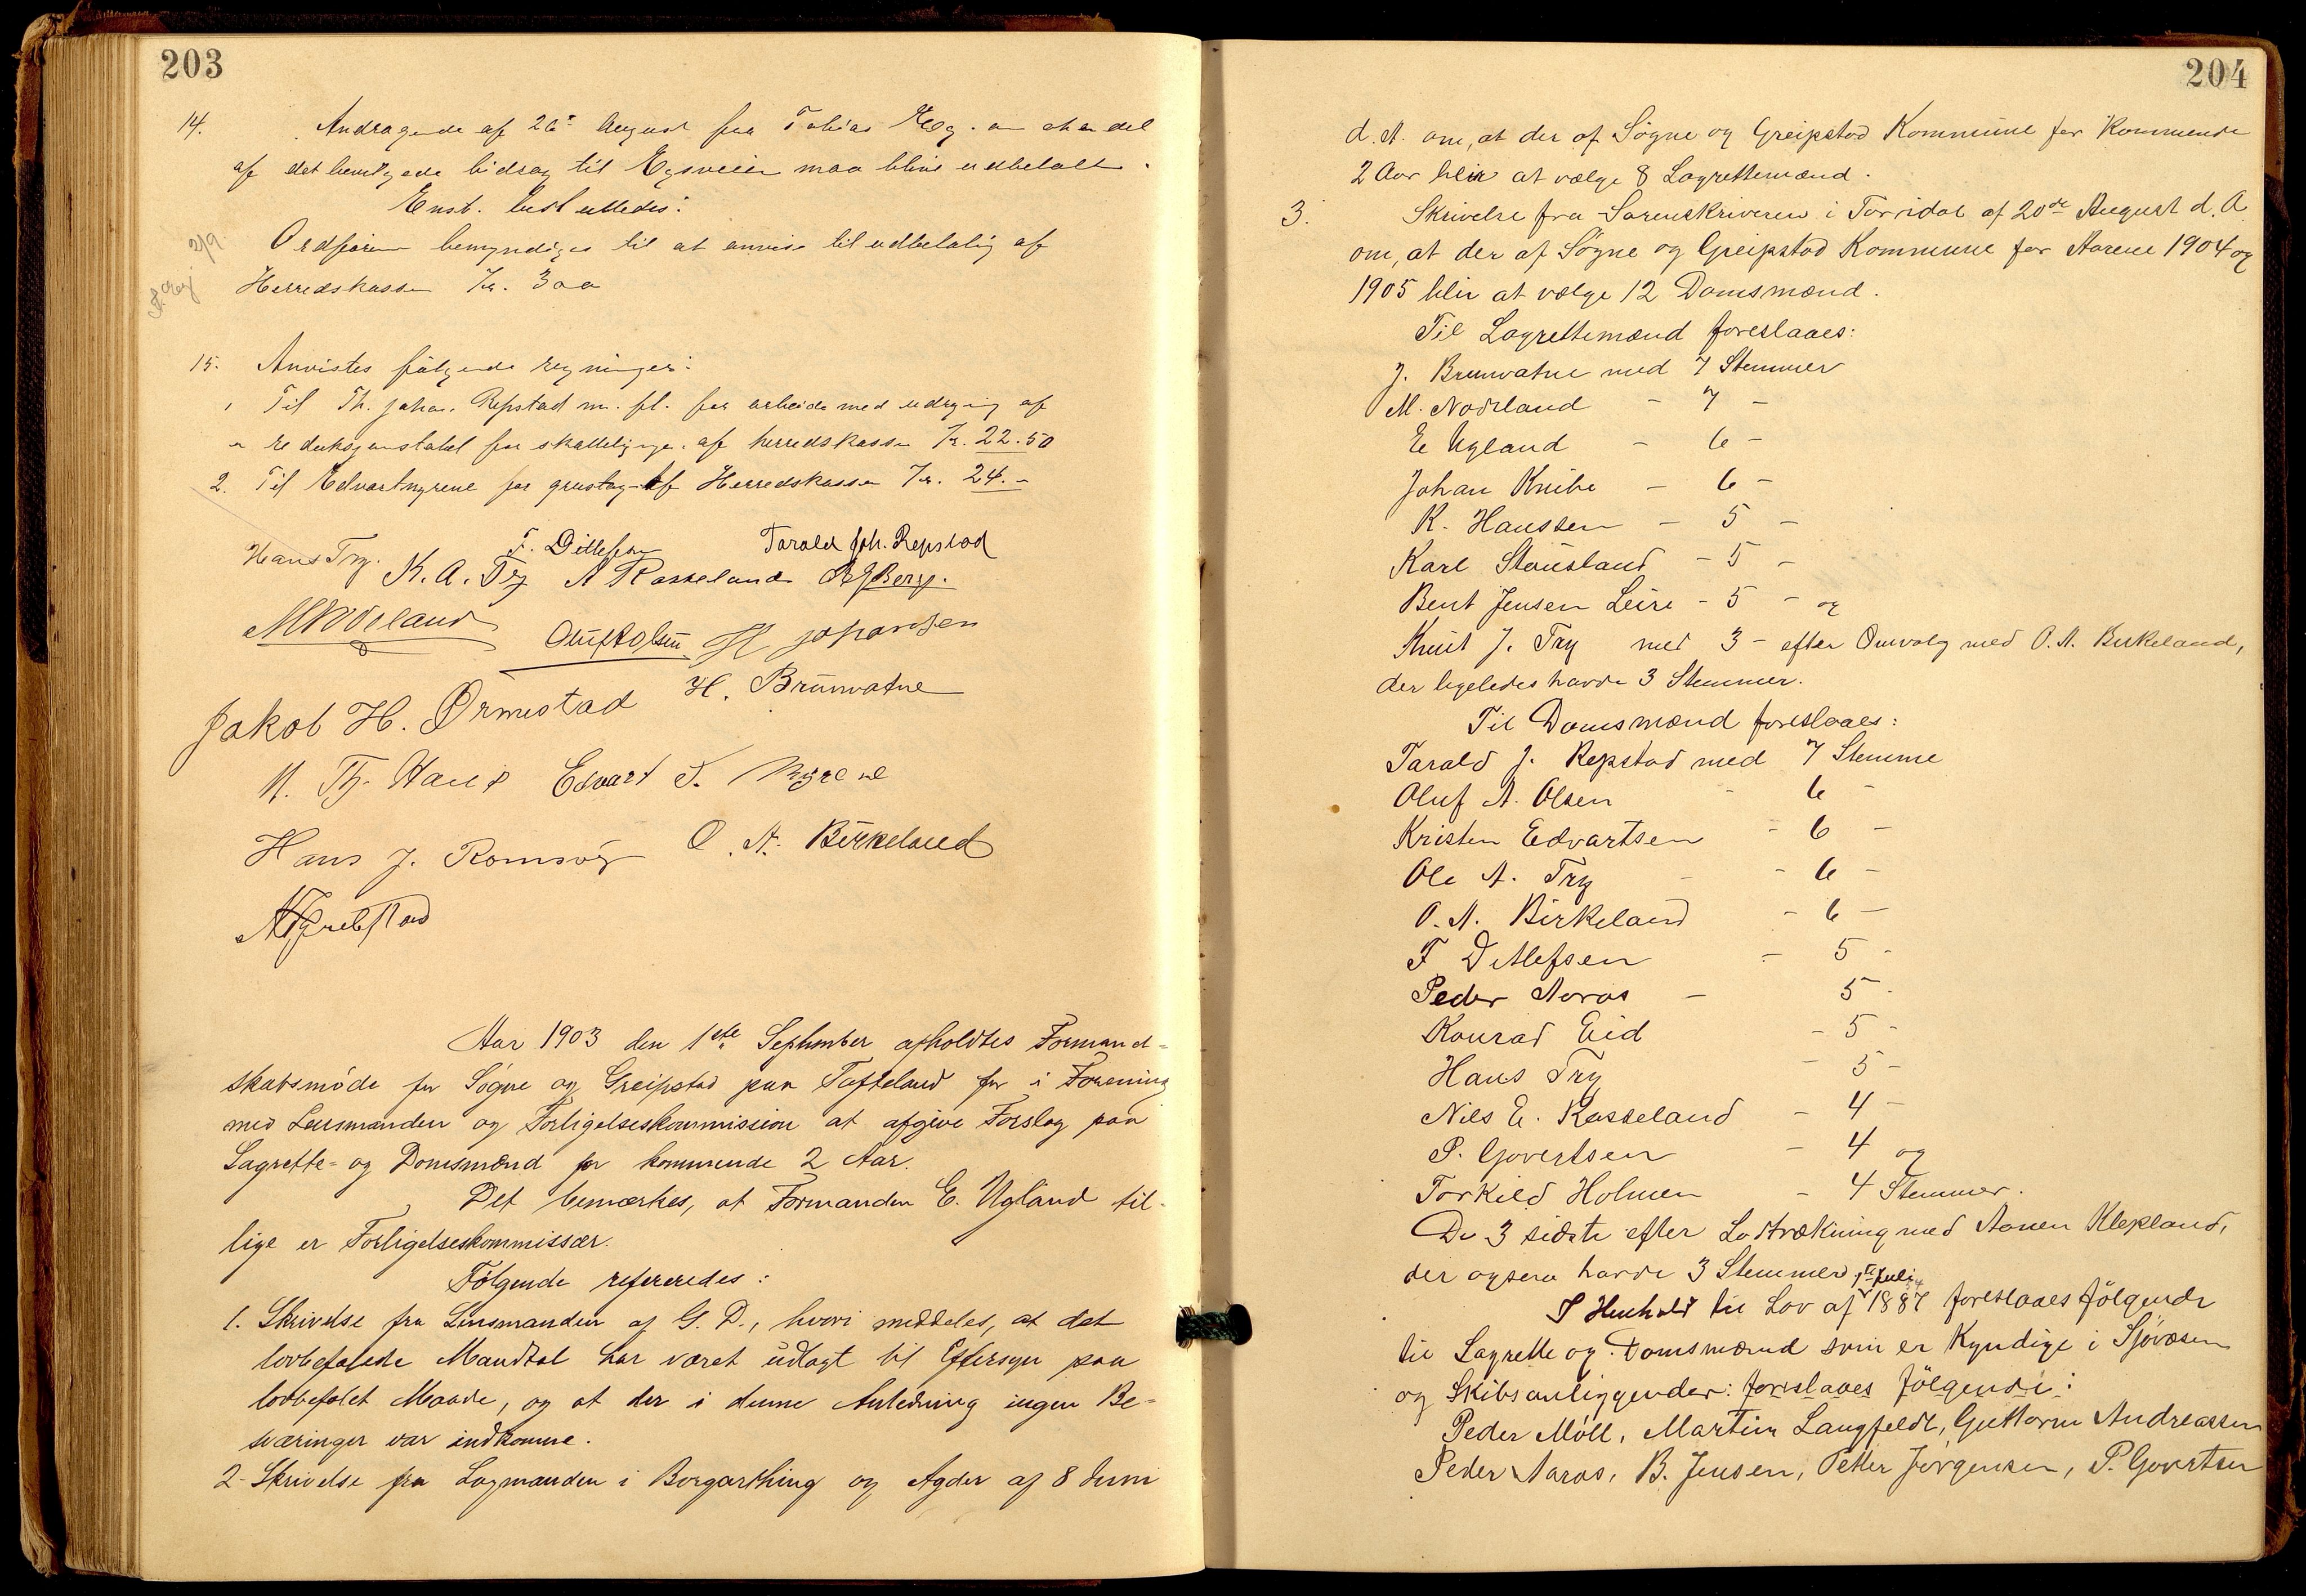 203
14. Andragende af 26de August fra Tobias Eeg. om at en del
af det bevilgede bidrag til Egsveien maa blive udbetalt.
Enst. besluttedes:
2/9. Ordføren bemyndiges til at anvise til udbetaling af
Herredskassen Kr. 300
15. Anvistes følgende regninger:
1 Til Th. Johan. Repstad m. fl. for arbeide med
for skatteligning. af herredskassen Kr. 22.50
2. Til Edvart Myrene for grustag af Herredskassen Kr. 24.-
Hans Try. F. Ditlefsen Tarald Joh. Repstad
K. A. Try N Rosseland Berge.
M Nodeland Oluf A Olsen H Johansen
Jakob H. Ormestad H. Brunvatne
N. Th. Edvart T. Myrene
Hans J. Romsvig O. N. Birkeland
Aar 1903 den 1ste September afholdtes Formand=
skabsmøde for Søgne og Greipstad paa Tofteland for i Forening
med Lensmanden og Forligelseskommission at afgive Forslag paa
Lagrette= og Domsmænd for kommende 2 Aar.
Det bemærkes, at Formanden E. Ugland til-
lige er Forligelseskommissær.
Følgende refereredes:
1. Skrivelse fra Lensmanden af G. D., hvori meddeles, at det
lovbefalede Mandtal har været udlagt til Eftersyn paa
lovbefalet Maade, og at der i denne Anledning ingen Be=
sværinger var indkomne.
2- Skrivelse fra Lagmanden i Borgarthing og Agder af 8 Juni
204
d. A. om, at der af Søgne og Greipstad Kommune for Kommende
2 Aar blir at vælge 8 Lagrettemænd.
3. Skrivelse fra Sorenskriveren i Torridal af 20de August d. A
om, at der af Søgne og Greipstad Kommune for Aarene 1904 og
1905 blir at vælge 12 Domsmænd.
Til Lagrettemænd foreslaaes:
J. Brunvatne med 7 Stemmer
M. Nodeland - 7 -
E Ugland - 6 -
Johan Knibe - 6 -
K. Hanssen - 5 -
Karl Stausland - 5 -
Bent Jensen Leire - 5 - og
Knut J. Try med 3 - efter Omvalg med O. N. Birkeland,
der ligeledes havde 3 Stemmer.
Til Domsmænd foreslaaes:
Tarald J. Repstad med 7 Stemme
Oluf A. Olsen - 6 -
Kristen Edvartsen - 6 -
Ole A. Try - - 6 -
O. N. Birkeland - 6 -
F Ditlefsen - 5 -
Peder Aaros - 5 -
Konrad Eid - 5 -
Hans Try - 5 -
Nils E. Rosseland - 4 -
P. Govertsen - 4 og
Torkild Holmen - 4 Stemmer.
De 3 sidste efter Lodtrækning med Aanen Klepland,
der ogsaa havde 3 Stemmer
I Henhold til Lov af 1te Juli 1887 foreslaaes følgende
til Lagrette og Domsmænd som er Kyndige i Sjøvæsen
og Skibsanliggender: foreslaaes følgende:
Peder Møll, Martin Langfeldt, Guttorm Andreassen
Peder Aaros, B. Jensen, Petter Jørgensen, P. Govertsen